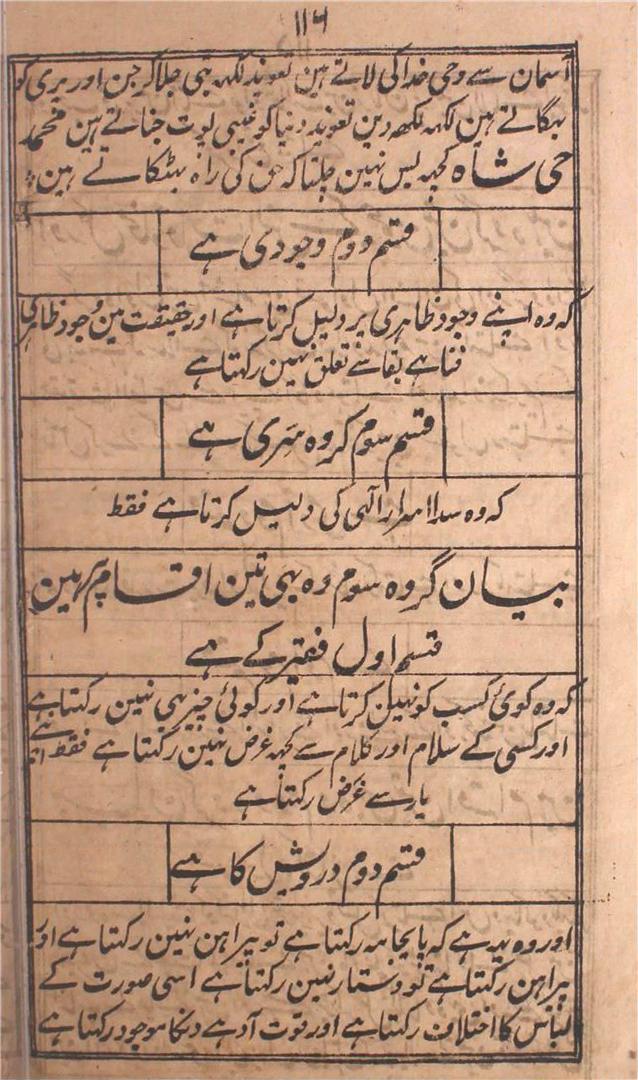 ۱۱۶
آسمان سے وحی خدا کی لاتے ہین تعویذ لکہہ بہی جلا کر جن اور پری کو
بہگاتے ہین لکہہ لکھہ دین تعویذ دنیا کو غیبی پوت جناتے ہین محمد
حی شاہ کچہہ بس نہین چلتا کہ حق کی راہ بہٹکاتے ہین
قسم دوم وجودی ہے
کہ وہ اپنے وجود ظاہری پر دلیل کرتا ہے اور حقیقت مین وجود ظاہری
فنا ہے بقا سے تعلق نہین رکہتا ہے
قسم سوم گروہ سری ہے
کہ وہ سدا اسرار الٰہی کی دلیل کرتا ہے فقط
بیان گروہ سوم وہ بہی تین اقسام پر ہین
قسم اول فقیر کے ہے
کہ وہ کوئی کسب کو نہین کرتا ہے اور کوئی چیز بہی نہین رکہتا ہے
اور کسی کے سلام اور کلام سے کچہہ غرض نہین رکہتا ہے فقط اپنے
یار سے غرض رکہتا ہے
قسم دوم درویش کا ہے
اور وہ یہ ہے کہ پایجامہ رکہتا ہے تو پیراہن نہین رکہتا ہے اور
پیراہن رکہتا ہے تو دستار نہین رکہتا ہے اسی صورت کے
لباس کا اختلاف رکہتا ہے اور قوت آدہے دنکا موجود رکہتا ہے